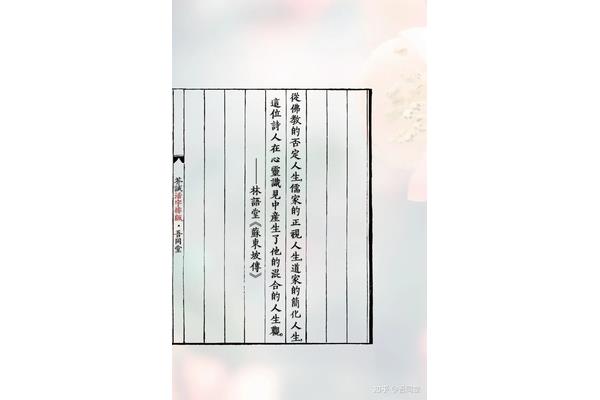 從佛教的否定人生，儒家的正視人生，道家的簡化人生，
這位詩人在心靈識見中産生了他的混合的人生觀。
——林語堂《蘇東坡傳》
活字排版·吾同堂
知乎 @吾同堂